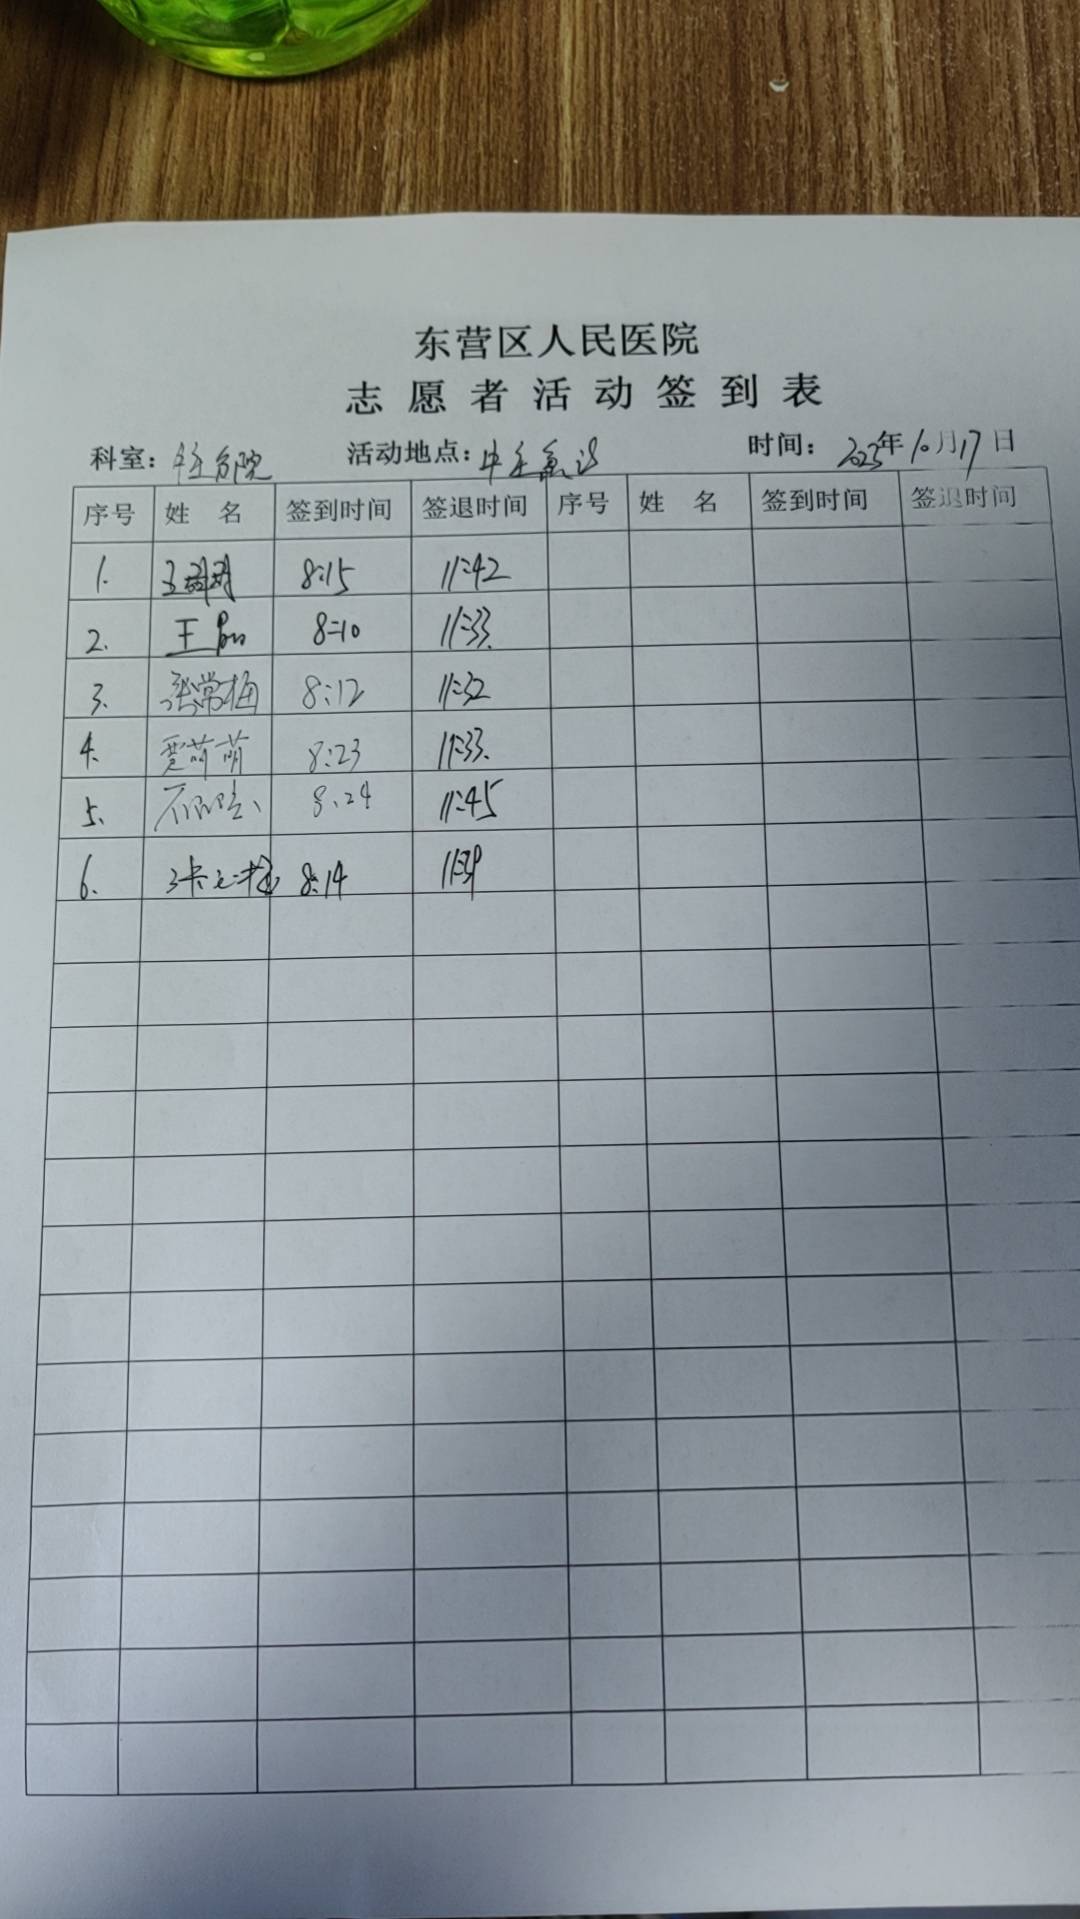 东营区人民医院
志愿者活动签到表
科室： 活动地点： 时间：2025年10月17日
序号 姓名 签到时间 签退时间 序号 姓名 签到时间 签退时间
1. 8:15 11:42
2. 王 8:10 11:33
3. 张常梅 8:12 11:32
4. 贾萌萌 8:23 11:33
5. 8:24 11:45
6. 8:14 11:39